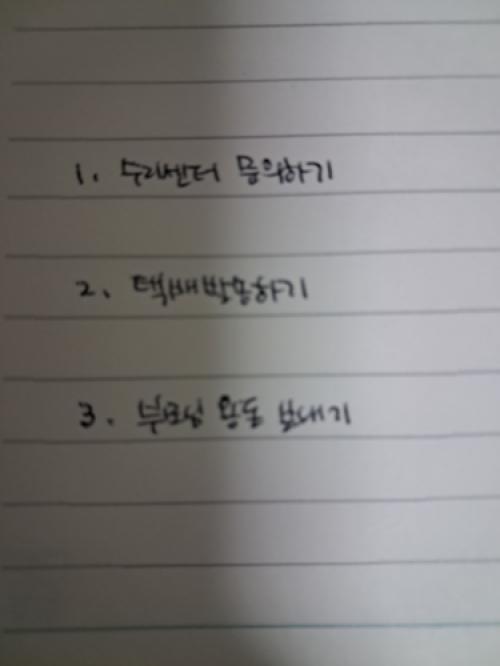 1. 수리센터 문의하기
2. 택배발송하기
3. 부모님 용돈 보내기